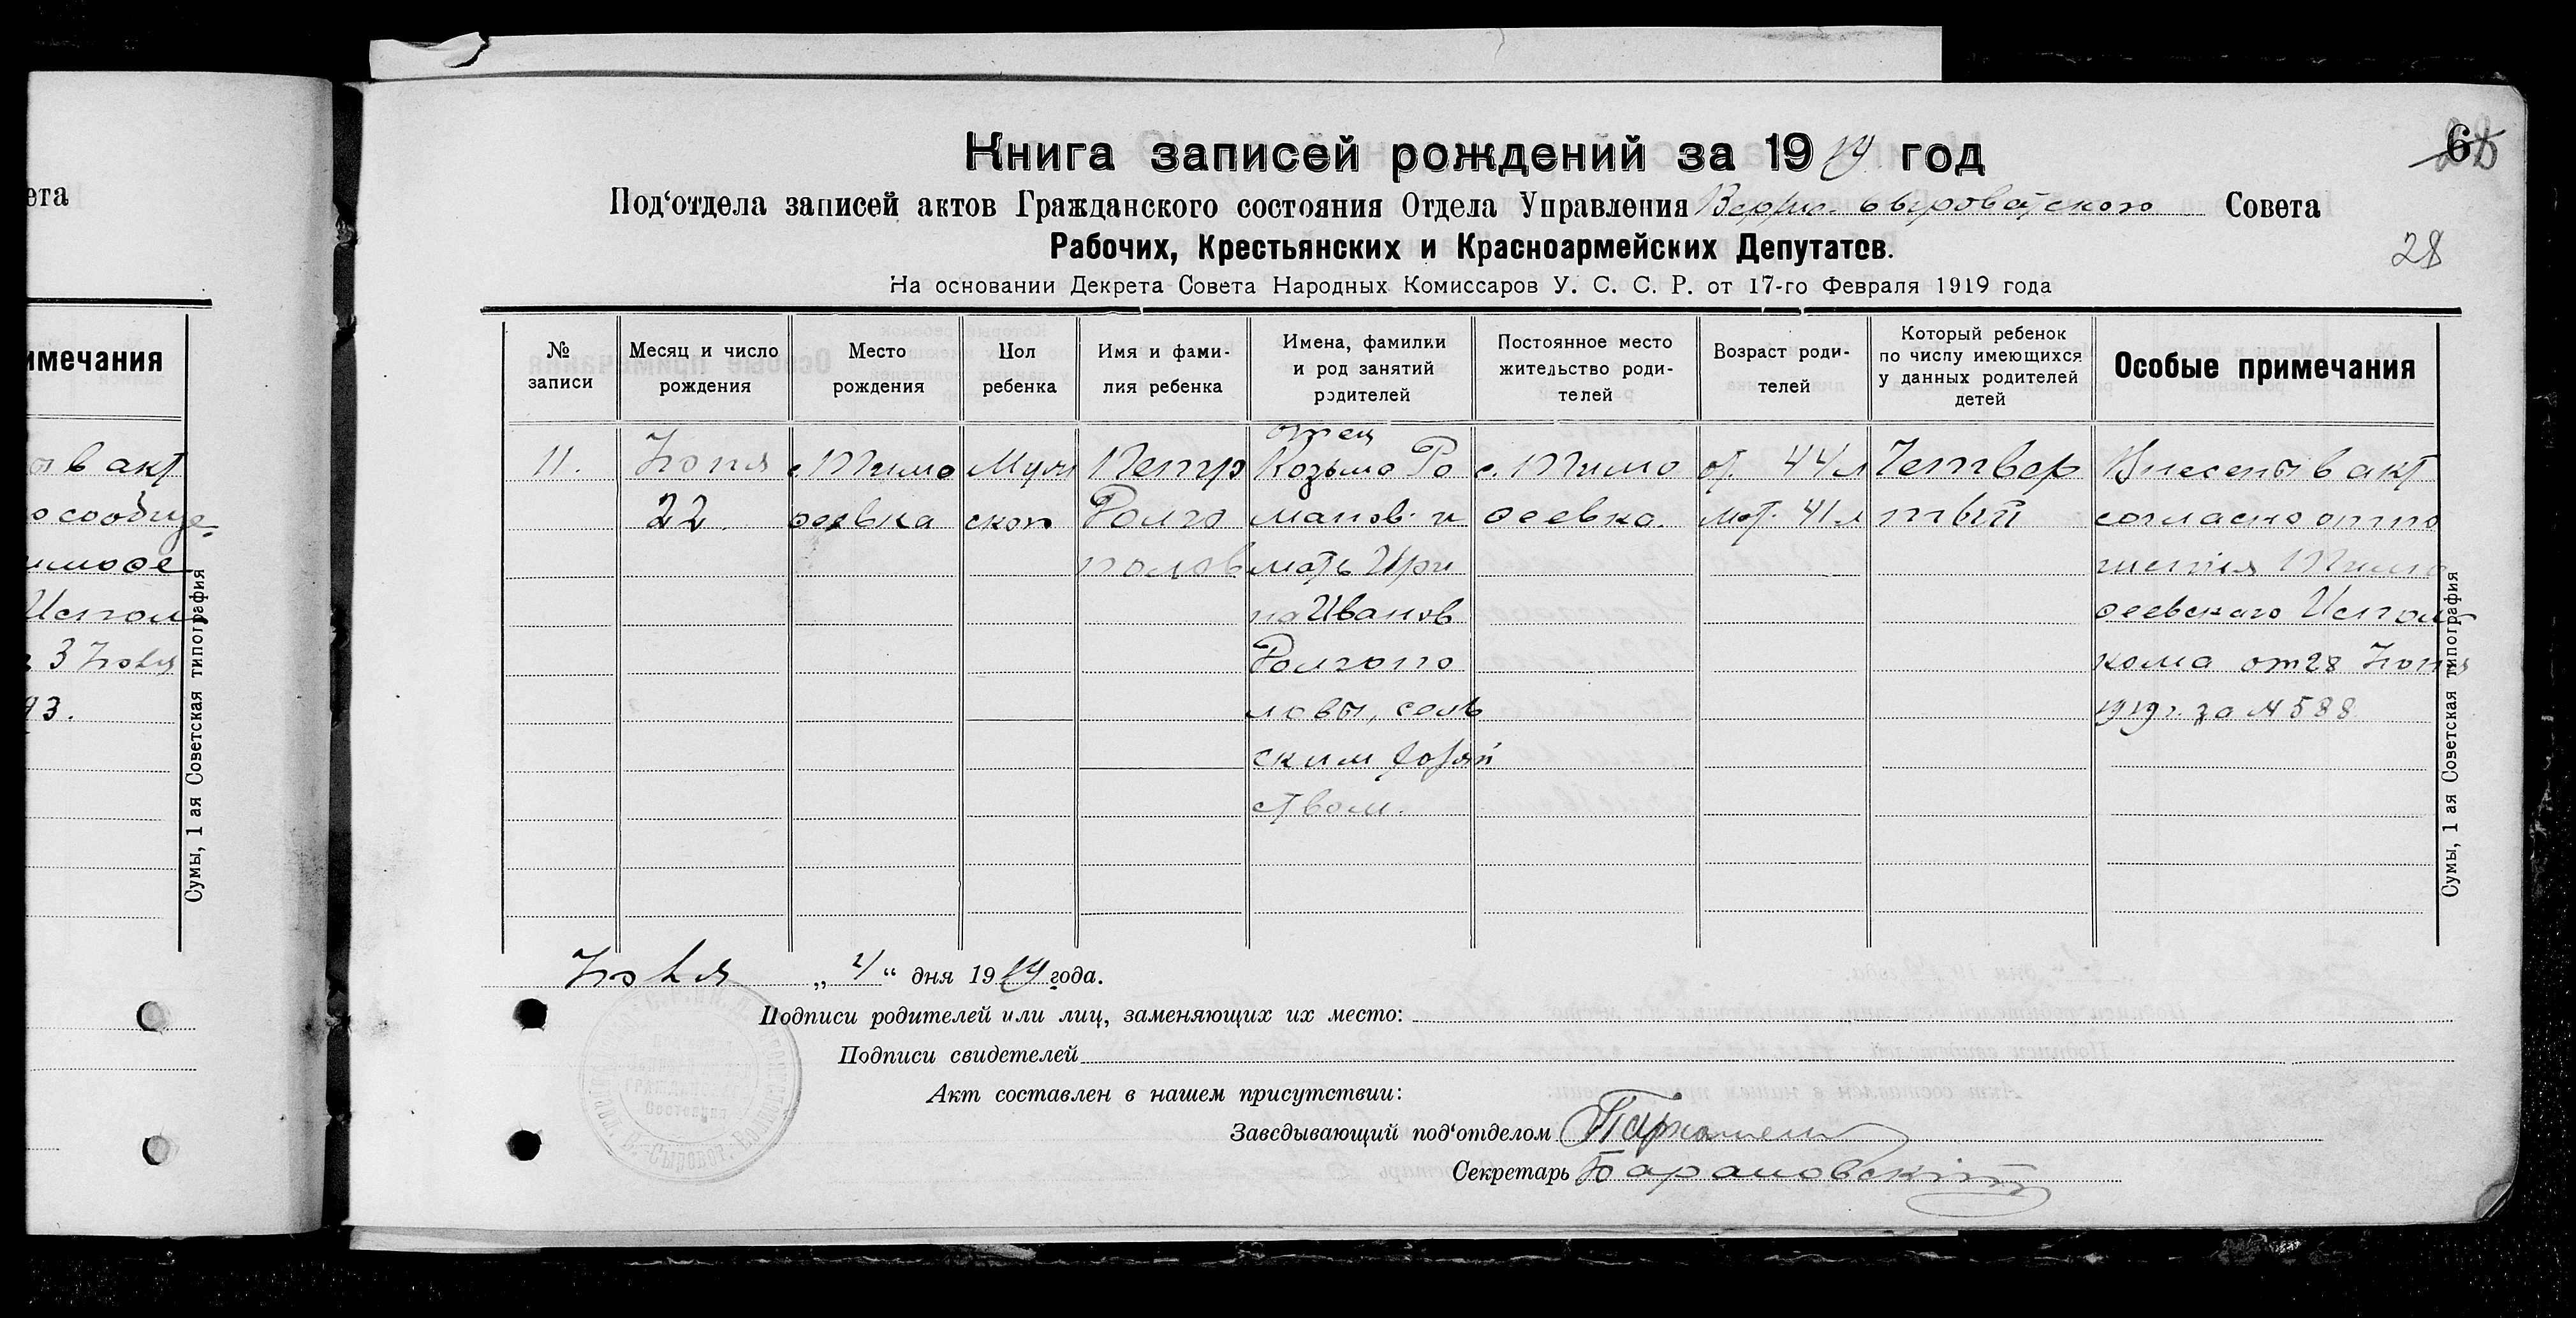 ета
имечания
ы в акт
о сообще-
имофе
Испол
3 Июля
93.
Сумы, 1 ая Советская типография
Книга записей рождений за 1919 год
28
Под‘отдела записей актов Гражданского состояния Отдела Управления Верхн. сыроватского Совета
Рабочих, Крестьянских и Красноармейских Депутатов.
28
На основании Декрета Совета Народных Комиссаров У. С. С. Р. от 17-го Февраля 1919 года
№
записи
Месяц и число
рождения
Место
рождения
Пол
ребенка
Имя и фами-
лия ребенка
Имена, фамилии
и род занятий
родителей
Постоянное место
жительство роди-
телей
Возраст роди-
телей
Который ребенок
по числу имеющихся
у данных родителей
детей
Особые примечания
11.
Июня
22.
с. Тимо
феевка
Муж
ской
Петр
Долго
полов
отец
Козьма Ро
манов. и
мать Ири
на Иванов
Долгопо
ловы, сель
ским хозяй
ством.
с. Тимо
феевка.
от. 44 л
мат. 41 л
Четвер
тый
Внесены в акт
согласно отно
шения Тимо
феевского Испол
кома от 28 Июня
1919 г. за № 588
Сумы, 1 ая Советская типография
Июля „ “ дня 1919 года.
Подписи родителей или лиц, заменяющих их место:
Подписи свидетелей
Акт составлен в нашем присутствии:
Заведывающий под‘отделом
Секретарь Барановский
ГРАЖДАНСКОГО
Состояния